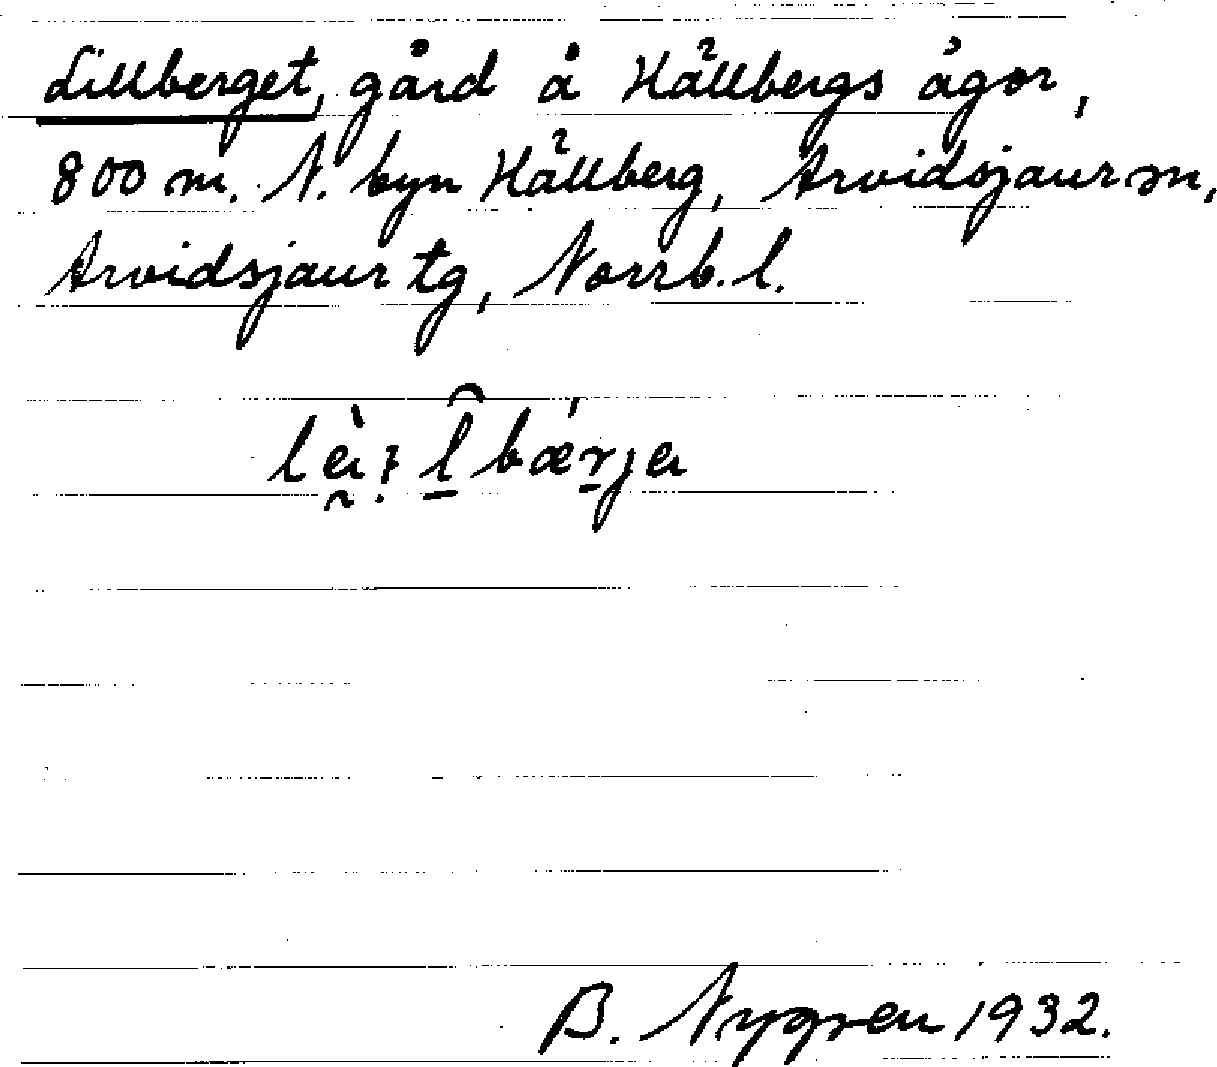 Lillberget, gård å Hällbergs ägor,
800 m. N. byn Hällberg, Arvidsjaur sn,
Arvidsjaur tg, Norrb. l.
B. Nygren 1932.